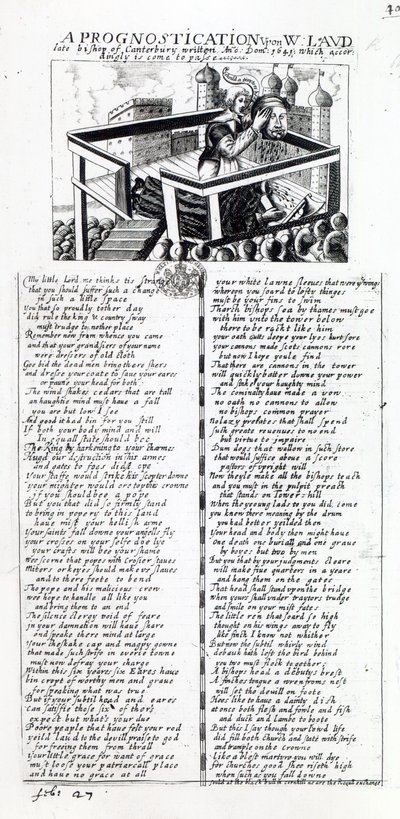 A PROGNOSTICATION upon W: LAVD
late bishop of Canterbury written Ano: Dom: 1641: which accor:
dingly is come to passe
My little Lord me thinks tis strange
that you should suffer such a chang
in such a little space
You that so proudly tother day
did rule the king & country sway
must trudge to nother place
Remember now from whence you came
and that your grandsiers of your name
were dressers of old cloth
Goe bid the dead men bring their shers
and dresse your coate to save your eares
or pawne your head for both
The wind shakes cedars that are tall
an haughtie mind must have a fall
you are but low I see
And good it had bin for you still
If both your body mind and will
In equall state should bee
The King by harkning to your charmes
Hugd our distruction in his armes
and gates to foes did ope
Your staffe would strike his scepter downe
your mighter would ore top the crowne
if you should bee a pope
But you that did so firmly stand
to bring in popery to this land
have mist your hellish arme
Your saints fall downe your angells fly
your crosses on your selfe doe lye
your crafts will bee your shame
We scorne that popes with crosier staves
Miters or keyes should make us slaves
and to there feete to bend
The pope and his malicious crew
wee hope to handle all like you
and bring them to an end
The silence clergy void of feare
in your damnation will have share
and speake there mind at large
Your cheesecake cap and magpy gowne
that made such strife in everie towne
must now defray your charge
Within this six yeares six Eares have
bin cropt of worthy men and grave
for speaking what was true
But if your subtil head and eares
can satisfie those six of theirs
expect but what's your due
Poore people that have felt your rod
yeild laud to the devill praise to god
for freeing them from thrall
Your little grace for want of grace
must loose your patriarcall place
and have no grace at all
your white lawne sleeves that were yr wings
wherein you soard to lofty things
must be your fins to swim
Tharch bishops sea by thames must goe
with him unto the tower below
there to be rackt like him
your oath cuts deepe your lyes hurt sore
your cannons made scots cannons rore
but now I hope youle find
That there are cannons in the tower
will quickly batter downe your power
and sinke your haughty mind
The cominalty have made a vow
no oath no cannons to allow
no bishops common prayer
No lazy prelates that shall spend
such greate revenues to no end
but virtue to impaire
Dum dogs that wallow in such store
that would suffice above a score
pastors of upright will
Now theyle make all the bishops teach
and you must in the pulpit preach
that stands on Tower-hill
When the young lads to you did come
you knew there meaning by the drum
you had better yeilded then
Your head and body then might have
one death one buriall and one grave
by boyes but two by men
But you that by your judgments cleare
will make five quarters in a yeare
and hang them on the gates
That head shall stand upon the bridge
when yours shall under traytors trudge
and smile on your mist fates
The little ren that soard so high
thought on his wings away to fly
like finch I know not whither
But now the subtil whirly wind
debauk hath left the bird behind
you two must flock together
A bishops head a debutys brest
A finches tongue a wren from's nest
will set the devill on foote
Hees like to have a dainty dish
at once both flesh and foule and fish
and duck and lambe to boote
But this I say though your lewd life
did fill both Church and state with strife
and trample on the crowne
Like a blest martyre you will dye
for churches good shee riseth high
when such as you fall downe
feb: 27